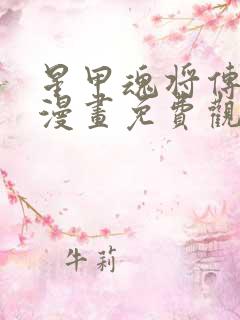 星甲魂将傳
漫畫免費觀
牛莉